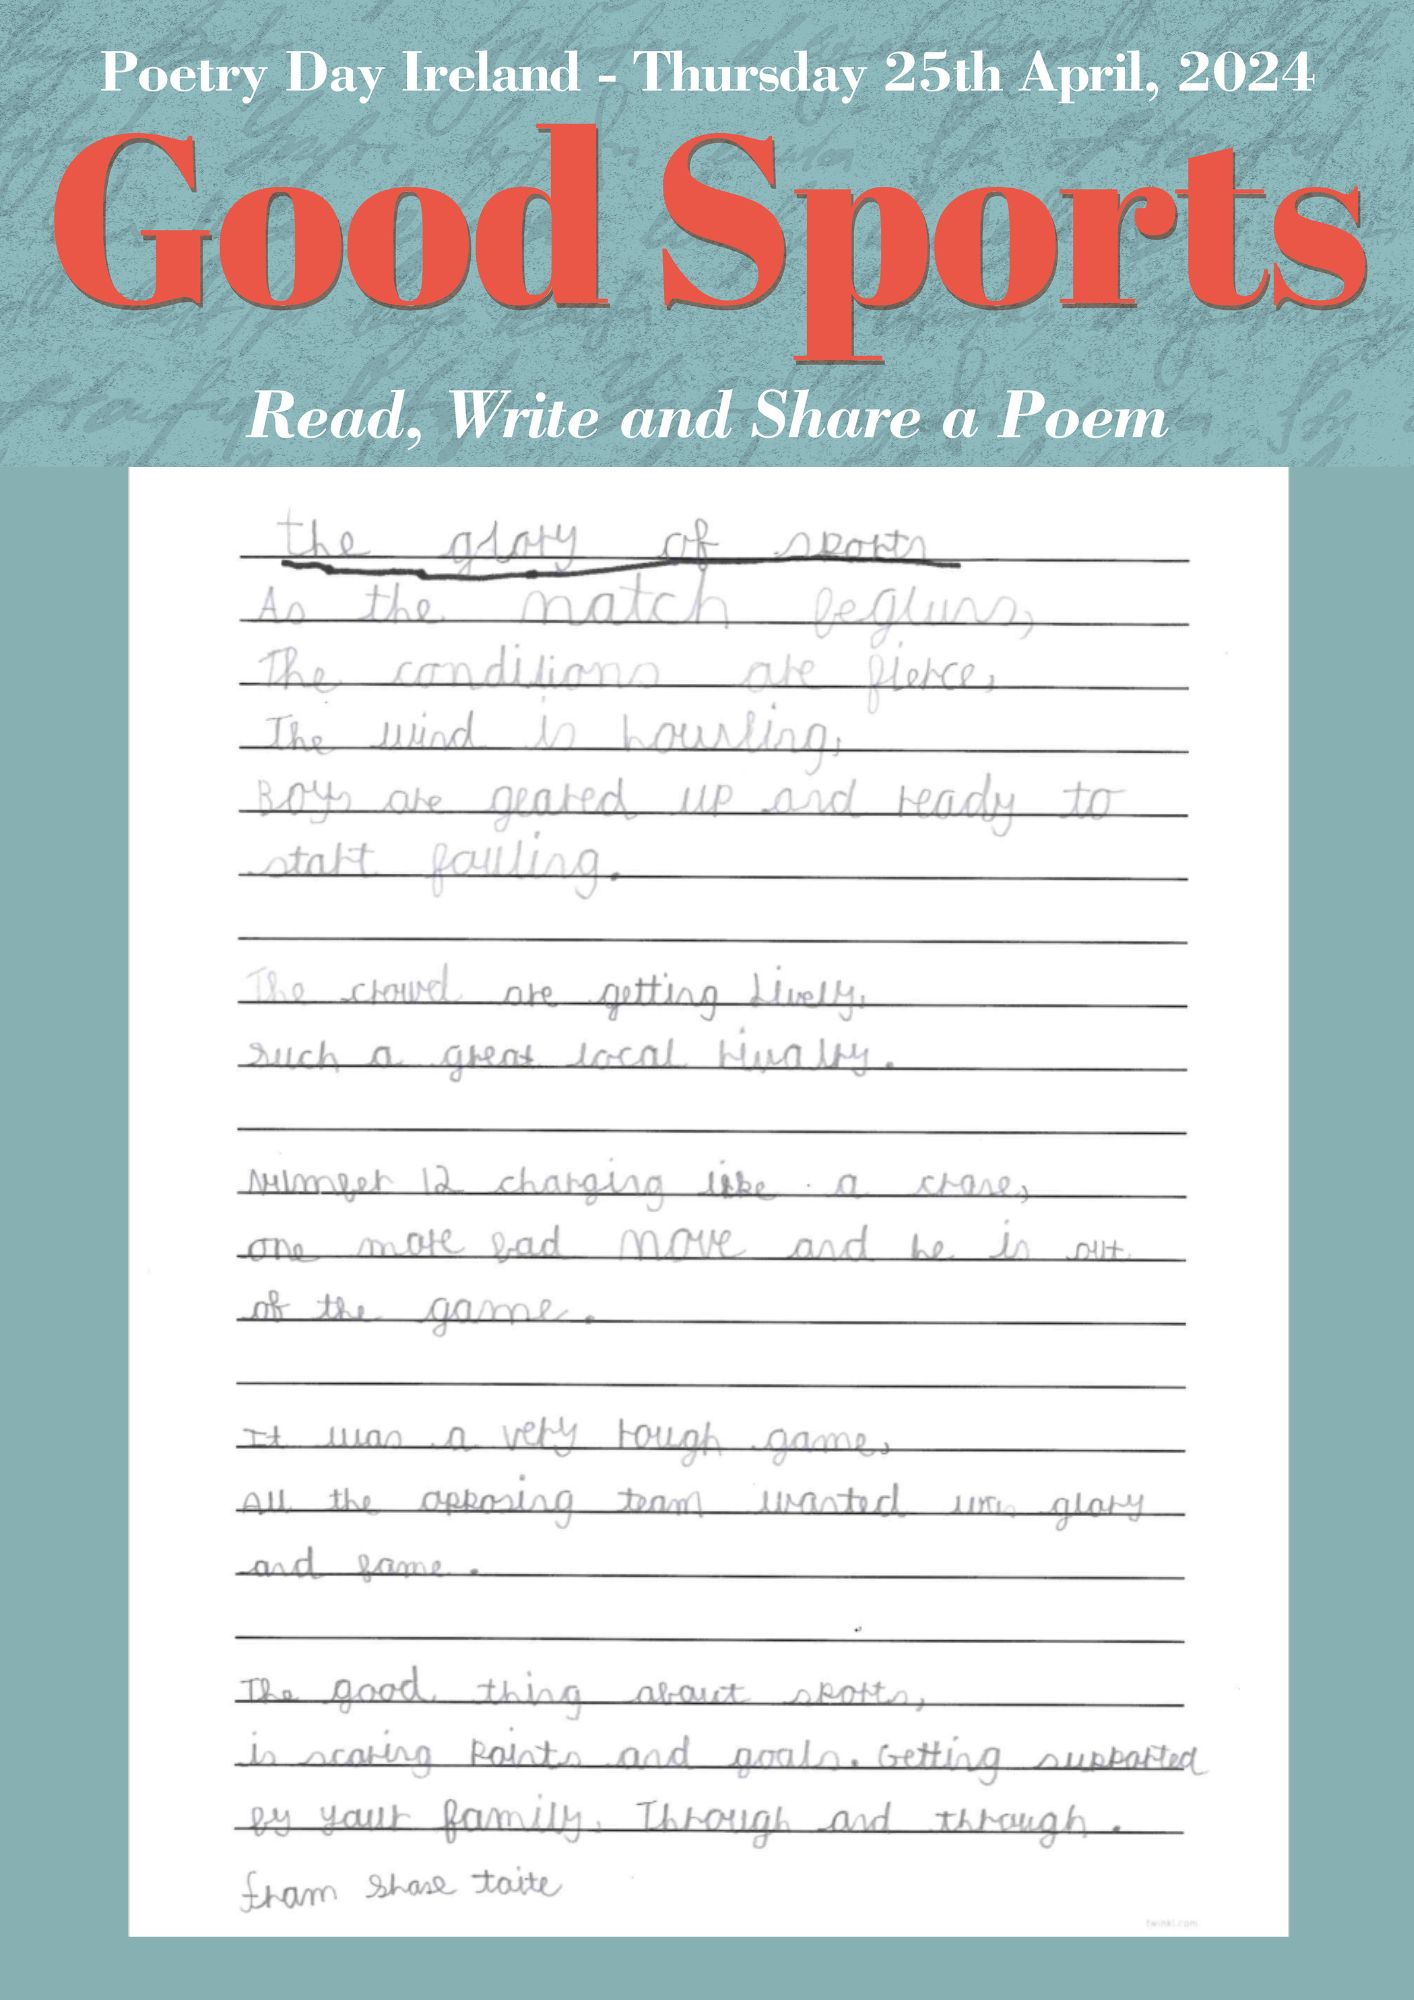 Poetry Day Ireland - Thursday 25th April, 2024
Good Sports
Read, Write and Share a Poem
the glory of sports
As the match begluns,
The conditions are fierce,
The wind is hourling,
Boys are geared up and ready to
start fauling.
The crowd are getting Lively,
Such a great local rivalry.
Number 12 charging like a crane,
one more bad move and he is out
of the game.
It was a very rough game,
All the opposing team wanted was glory
and fame.
The good thing about sports,
is scoring points and goals. Getting supported
by your family. Through and through.
from Shase taite
twinkl.com